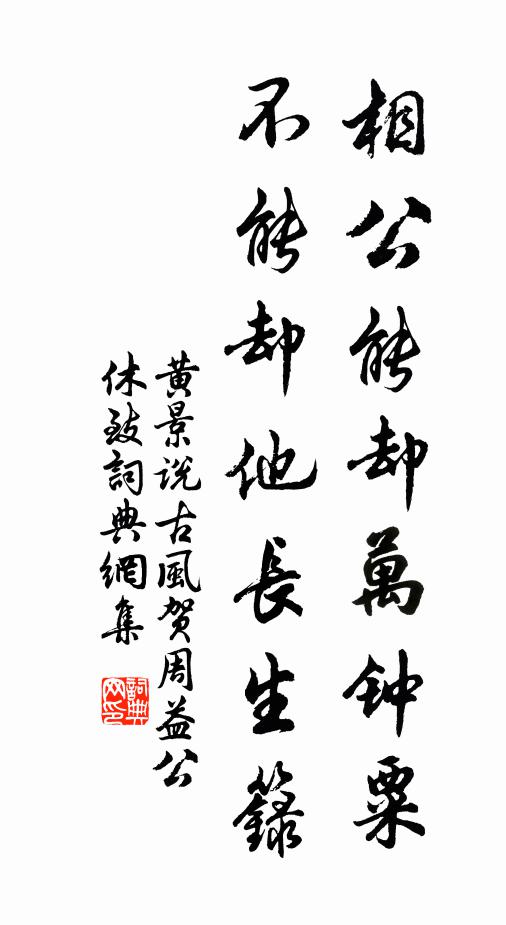 相公能却萬钟粟
不能却他長生籙
黄景说古風贺周益公
休致詞典網集
詞典
网印